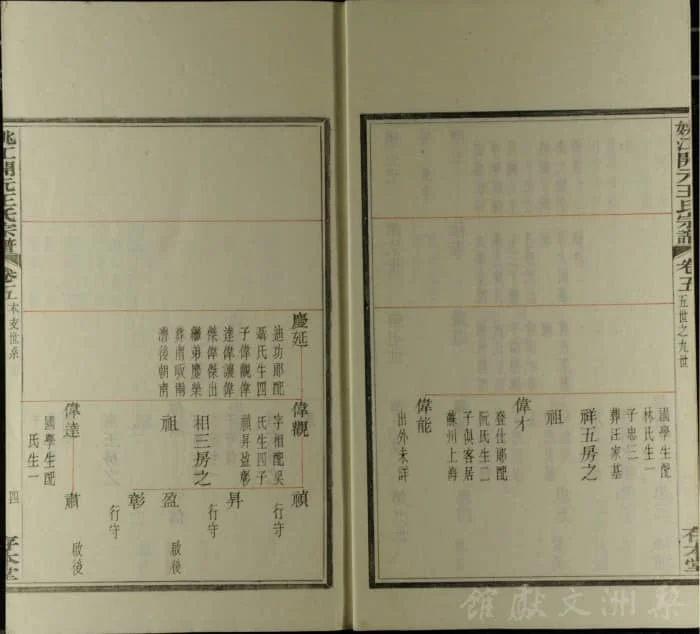 姚江開元王氏宗譜
卷五
五世之九世
國學生配
林氏生一
子忠三
葬汪家基
祥五房之
祖
偉才
登仕郎配
阮氏生二
子俱客居
蘇州上海
偉能
出外未詳
存本堂
慶延
迪功郎配
聶氏生四
子偉觀偉
達偉讓偉
傑偉傑出
繼弟慶榮
葬南
漕後朝南
偉觀
字相配吳
氏生四子
禎昇盈彰
相三房之
祖
禎
行守
昇
行守
盈
啟後
彰
行守
偉達
國學生配
氏生一
肅
啟後
姚江開元王氏宗譜
卷五
本支世系
四
存本堂
梨洲文獻館